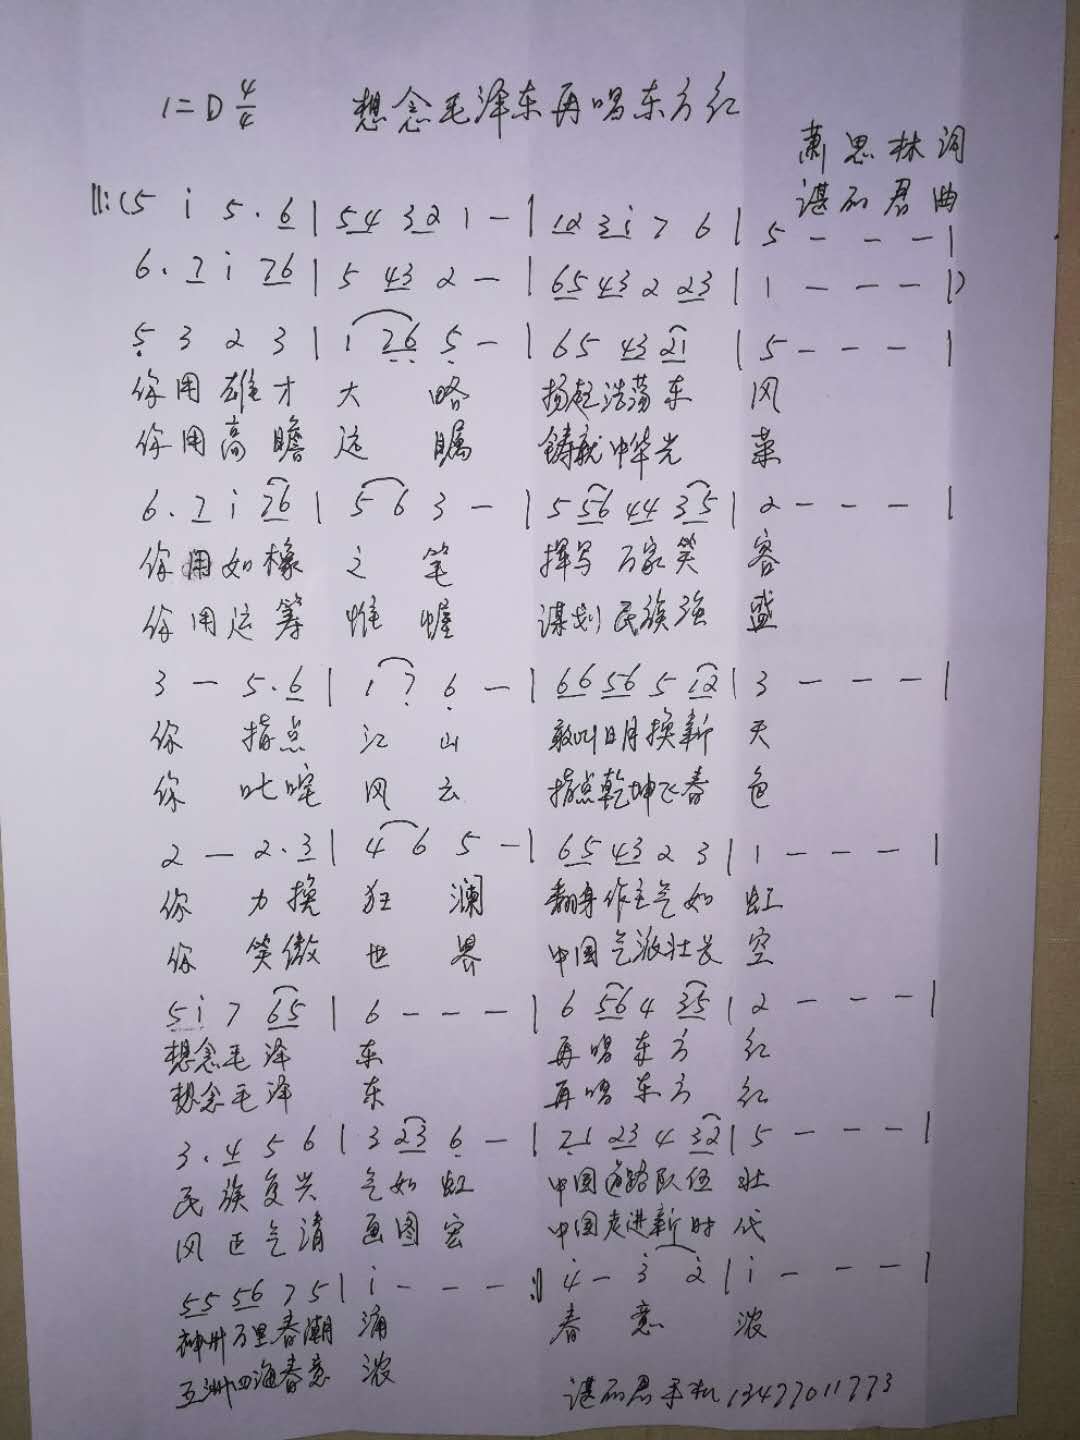 1=D 4/4 想念毛泽东再唱东方红
萧思林词
谌丙君曲
‖:(5 i 5. 6 | 54 32 1 - | 12 3i 7 6 | 5 - - - |
6. 7 i 76 | 5 43 2 - | 65 43 2 23 | 1 - - - |)
5 3 2 3 | 1 76 5 - | 65 43 21 | 5 - - - |
你用雄才 大 略 扬起浩荡东 风
你用高瞻 远 瞩 铸就中华光 荣
6. 7 i 76 | 5 6 3 - | 5 56 44 35 | 2 - - - |
你用如椽 之 笔 挥写万家笑 容
你用运筹 帷 幄 谋划民族强 盛
3 - 5. 6 | 1 7 6 - | 66 56 5 12 | 3 - - - |
你 指点 江 山 敢叫日月换新 天
你 叱咤 风 云 指点乾坤飞春 色
2 - 2. 3 | 4 6 5 - | 65 43 2 3 | 1 - - - |
你 力挽 狂 澜 翻身作主气如 虹
你 笑傲 世 界 中国气派壮长 空
5 i 7 65 | 6 - - - | 6 56 4 35 | 2 - - - |
想念毛泽 东 再唱东方 红
想念毛泽 东 再唱东方 红
3. 4 5 6 | 3 23 6 - | 21 23 4 32 | 5 - - - |
民族复兴 气如虹 中国道路队伍 壮
风正气清 画图宏 中国走进新时 代
55 56 7 5 | i - - - :‖ 4 - 3 2 | i - - - |
神州万里春潮 涌 春 意 浓
五洲四海春意 浓
谌丙君手机13477011773